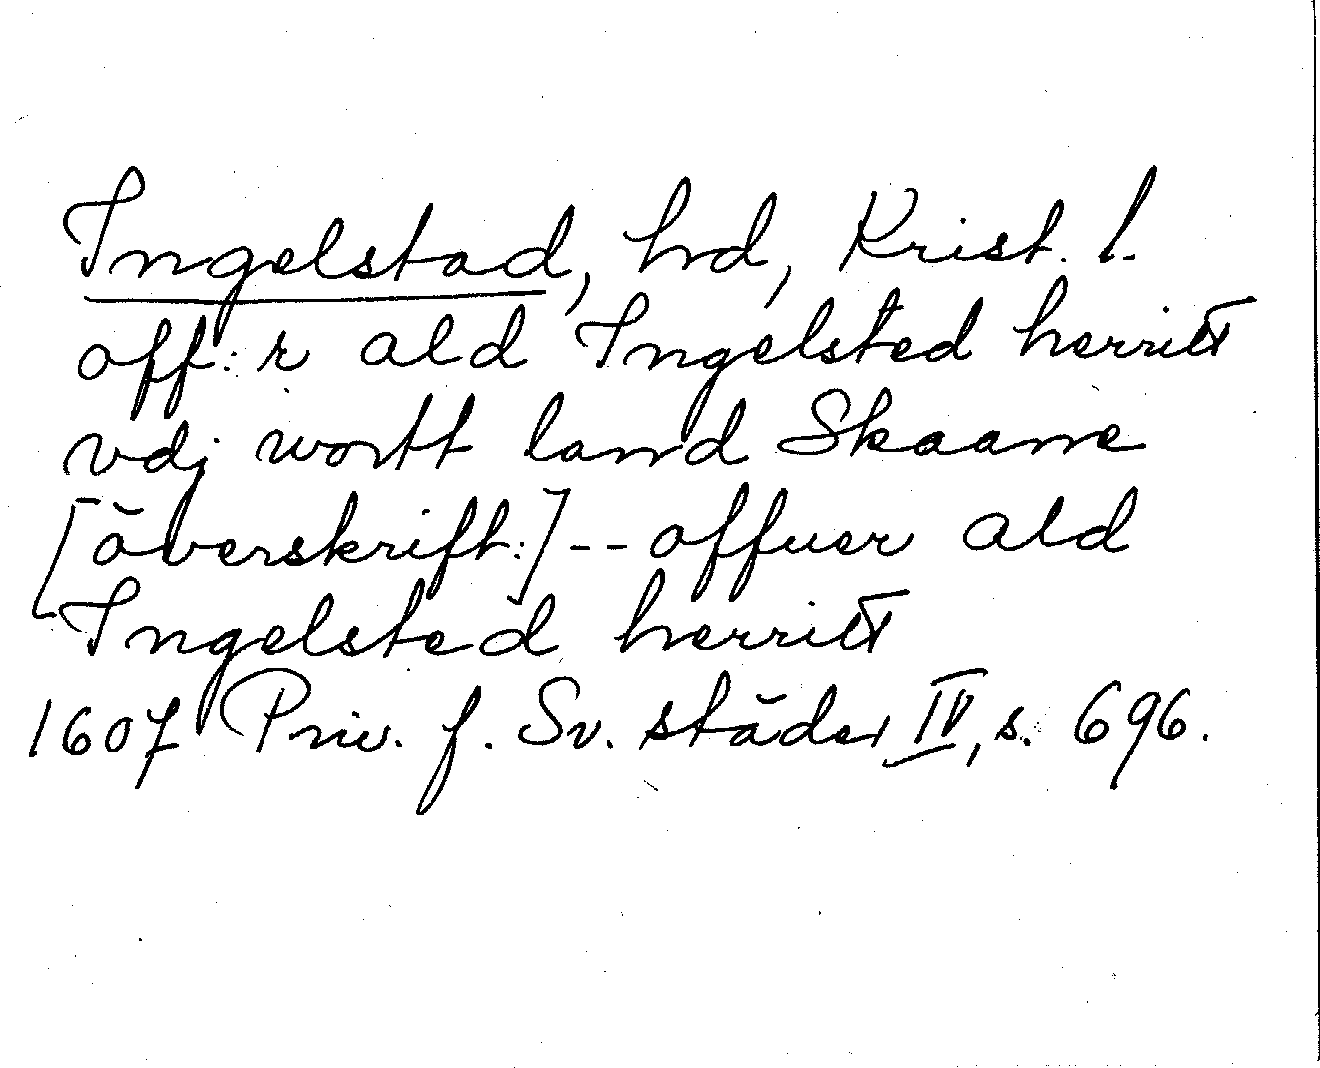 Ingelstad, hd, Krist. l.
off: r ald Ingelsted herritt
vdj wortt land Skaane
[överskrift:] -- offuer ald
Ingelsted herritt
1607 Priv. f. Sv. städer IV, s. 696.